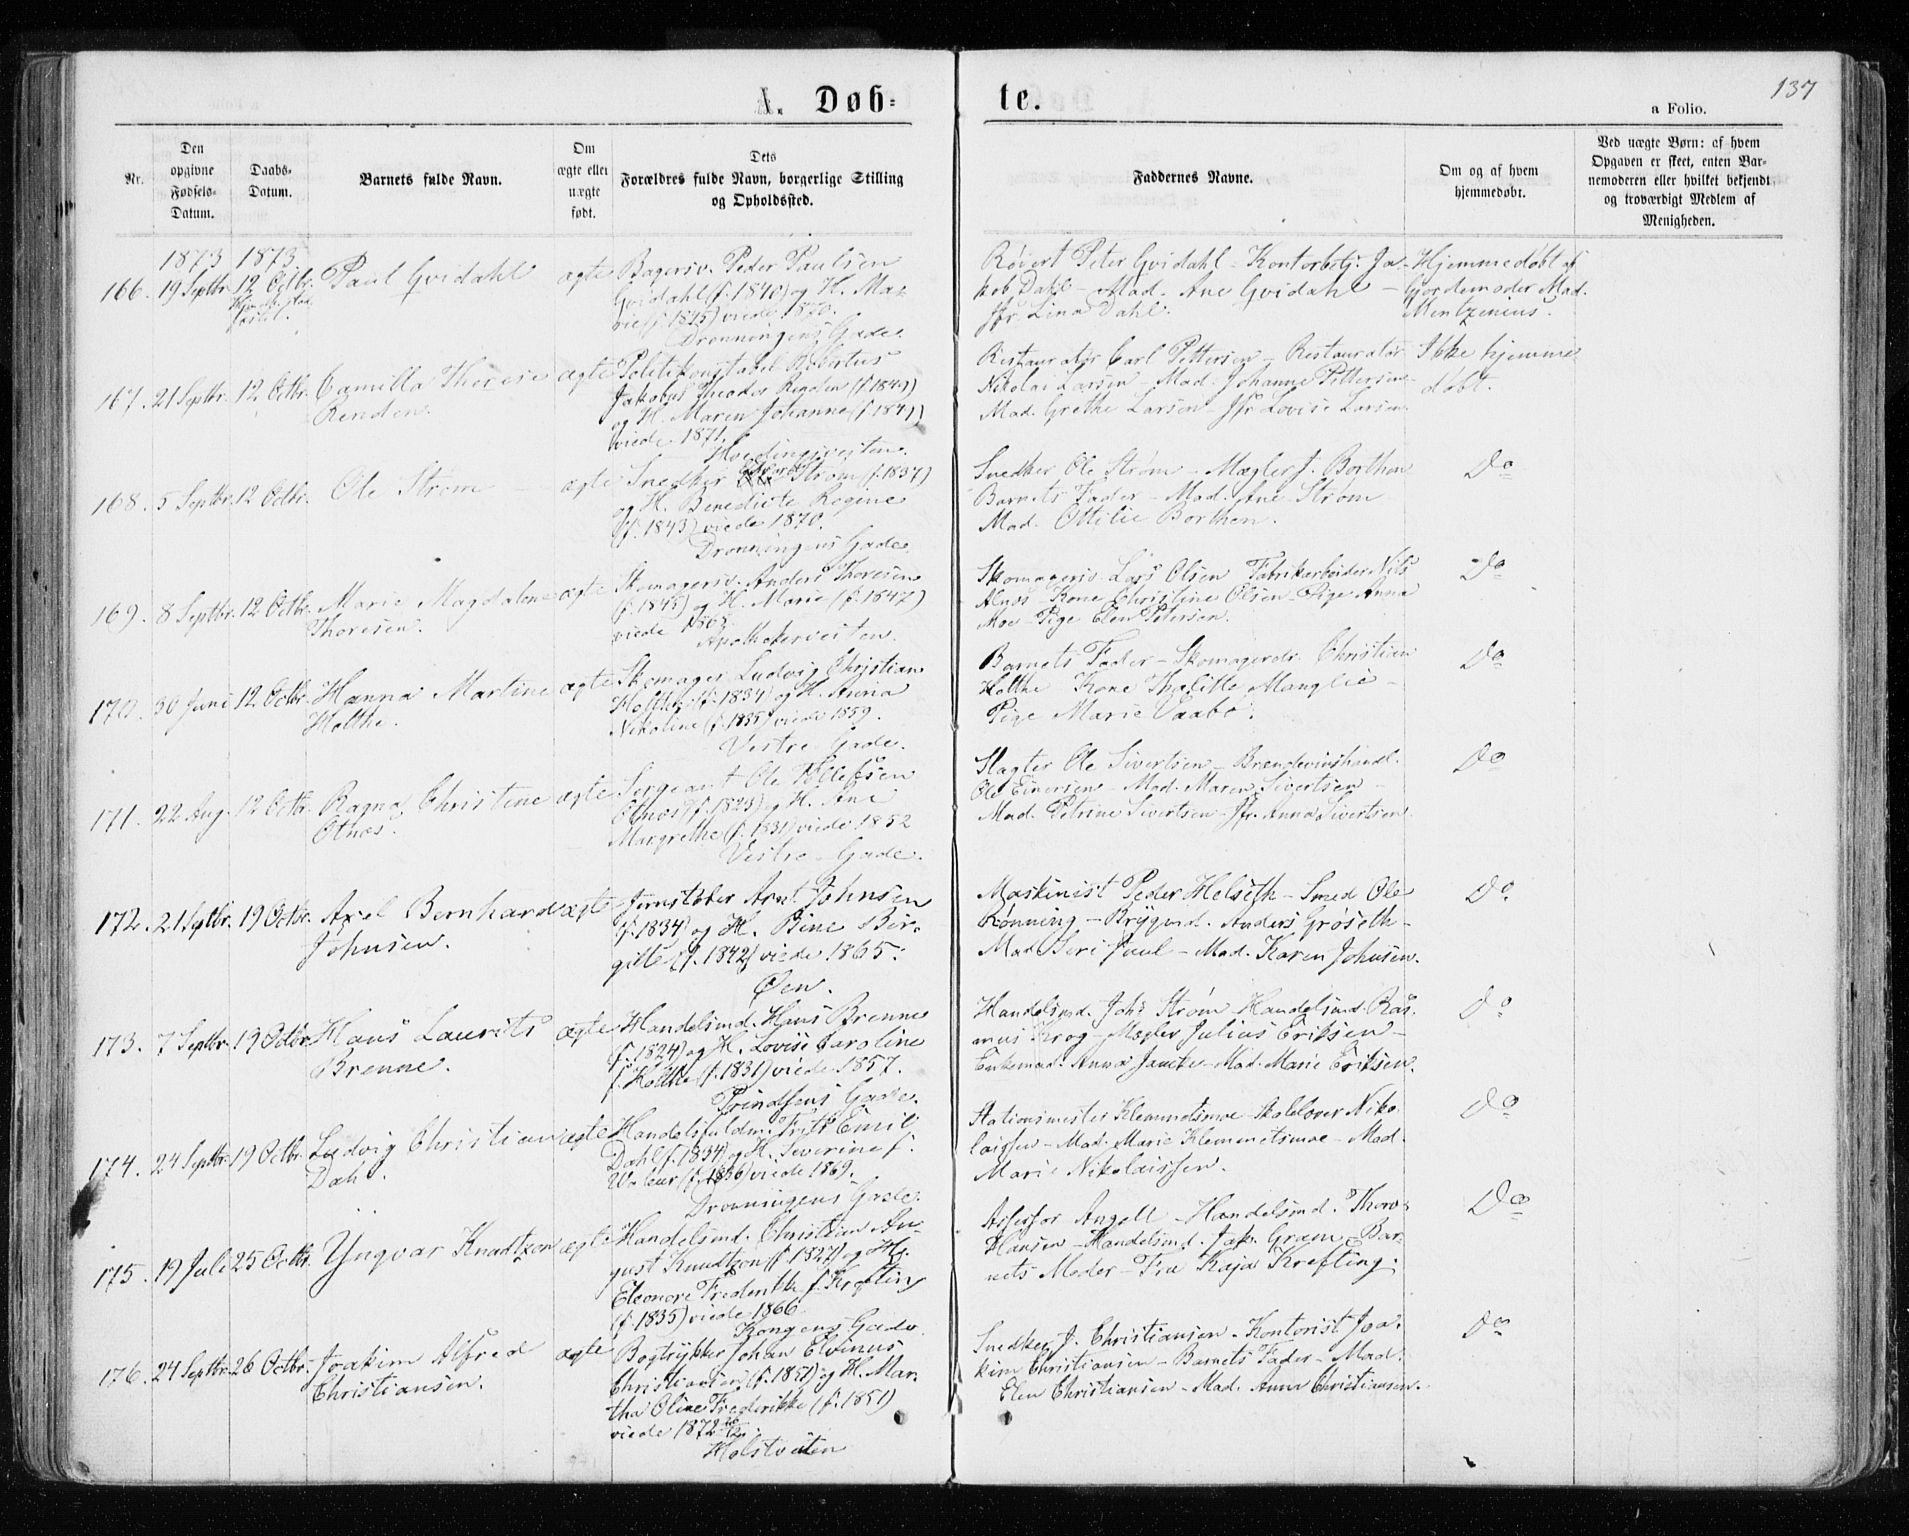 A. Døb-
te.
137
a Folio.
Nr.
Den opgivne Fødsels-Datum.
Daabs-Datum.
Barnets fulde Navn.
Om ægte eller uægte født.
Dets
Forældres fulde Navn, borgerlige Stilling
og Opholdssted.
Faddernes Navne.
Om og af hvem
hjemmedøbt.
Ved uægte Børn: af hvem
Opgaven er skeet, enten Bar-
nemoderen eller hvilket bekjendt
og troværdigt Medlem af
Menigheden.
1873 1873
166. 19 Septbr. 12 Octbr. Paul Gvidahl ægte Bagersv. Peder Paulsen
Gvidahl (f. 1840) og H. Ma-
rie (f. 1845) viede 1870.
Dronningens Gade.
Peter Gvidahl - Kontorbetj. Ja-
kob Dahl - Mad. Ane Gvidahl -
Jfr. Lina Dahl.
Hjemmedøbt af
Gjordemoder Mad.
Mentzenius.
167. 21 Septbr. 12 Octbr. Camilla Therese ægte Politikonstabel
Renden.
Jakobus Theodor Renden (f. 1849)
og H. Maren Johanne (f. 1841)
viede 1871.
Restauratør Carl Pettersen - Restauratør
Nikolai Larsen - Mad. Johanne Pettersen
Mad. Grethe Larsen - Jfr. Lovise Larsen.
Ikke hjemme
døbt.
168. 5 Septbr. 12 Octbr. Ole Strøm ægte Snedker Strøm (f. 1837)
og H. Benedicte Regine
(f. 1843) viede 1870.
Dronningens Gade.
Snedker Ole Strøm - Mægler J. Borthen
Barnets Fader - Mad. Ane Strøm
Mad. Ottilie Borthen.
Do
169. 8 Septbr. 12 Octbr. Marie Magdalene ægte Skomagersv. Anders Thoresen
Thoresen.
(f. 1845) og H. Marie (f. 1847)
viede
Apothekerveiten.
Skomagersv. Lars Olsen Fabrikarbeider Nils
Alnæs - Kone Christine Olsen - Pige Anna
Moe - Pige Elen Petersen.
Do
170. 30 Juni 12 Octbr. Hanna Martine ægte Skomager Ludvig Christian
Holthe.
Holthe (f. 1834) og H. Anna
Nikoline (f. 1835) viede 1859.
Vestre Gade.
Barnets Fader - Skomagerdr. Christian
Holthe Kone Thalitte Manglie -
Pige Marie Vaabe.
Do
171. 22 Aug. 12 Octbr. Ragna Christine ægte Sergeant Ole Tollefsen
Otnæs.
Otnæs (f. 1823) og H. Ane
Margrethe (f. 1831) viede 1852
Vestre Gade.
Slagter Ole Sivertsen - Brændevinshandl.
Ole Einersen - Mad. Maren Sivertsen -
Mad. Petrine Sivertsen - Jfr. Anna Sivertsen
Do
172. 21 Septbr. 19 Octbr. Axel Bernhard ægte Jernstøber Arnt Johnsen
Johnsen.
(f. 1834) og H. Bine Bir-
gitte (f. 1842) viede 1865.
Øen.
Maskinist Peder Helseth - Smed Ole
Rønning - Bryggmd. Anders Grøseth -
Mad. Seri Juul - Mad. Karen Johnsen.
Do
173. 7 Septbr. 19 Octbr. Hans Laurits ægte Handelsmd. Hans Brenne
Brenne.
(f. 1824) og H. Lovise Caroline
f. Holthe (f. 1831) viede 1857.
Prindsens Gade.
Handelsmd. Johs Strøm - Handelsmd. Ras-
mus Krog - Mægler Julius Eriksen -
Enkemad. Anna - Mad. Marie Eriksen.
Do
174. 24 Septbr. 19 Octbr. Ludvig Christian ægte Handelsfuldm. Frits Emil
Dahl.
Dahl (f. 1834) og H. Severine f.
(f. 1836) viede 1869.
Dronningens Gade.
Stationsmester Klemmetsmoe - Skolelærer Niko-
laissen - Mad. Marie Klemmetsmoe - Mad.
Marie Nikolaissen.
Do
175. 19 Juli 25 Octbr. Yngvar Knudtzon ægte Handelsmd. Christian Au-
gust Knudtzon (f. 1827) og H.
Eleonore Frederikke f. Krefting
(f. 1835) viede 1866.
Kongens Gade.
Assessor Angell - Handelsmd. Thorv.
Hansen - Handelsmd. Jak. Gram - Bar-
nets Moder - Fru Kaja Krefting.
Do
176. 24 Septbr. 26 Octbr. Joakim Alfred ægte Bogtrykker Johan Elvinus
Christiansen.
Christiansen (f. 1851) og H. Mar-
tha Oline Frederikke (f. 1851)
viede 1872
Holstveiten
Snedker J. Christiansen - Kontorist Joa-
kim Christiansen - Barnets Fader - Mad.
Elen Christiansen - Mad. Anna Christiansen.
Do